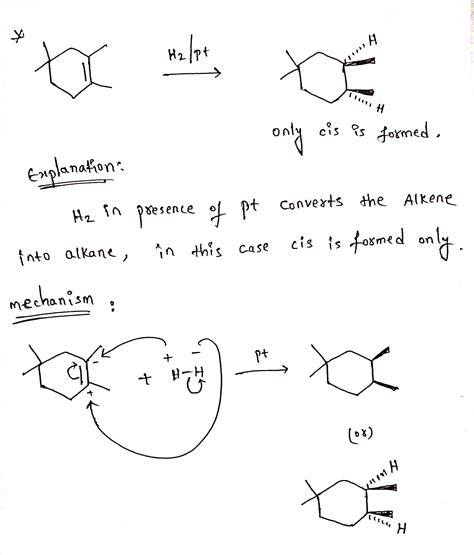 * H2/pt
H
H
only cis is formed.
Explanation:
H2 in presence of pt converts the Alkene
into alkane, in this case cis is formed only.
mechanism :
+ -
- pt
+ H-H
+
(or)
H
H